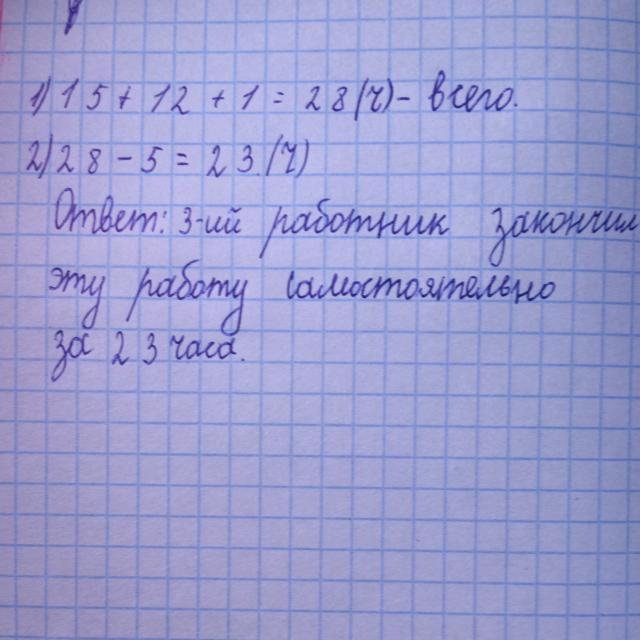 1) 15 + 12 + 1 = 28 (ч) - всего.
2) 28 - 5 = 23. (ч)
Ответ: 3-ий работник закончил
эту работу самостоятельно
за 23 часа.